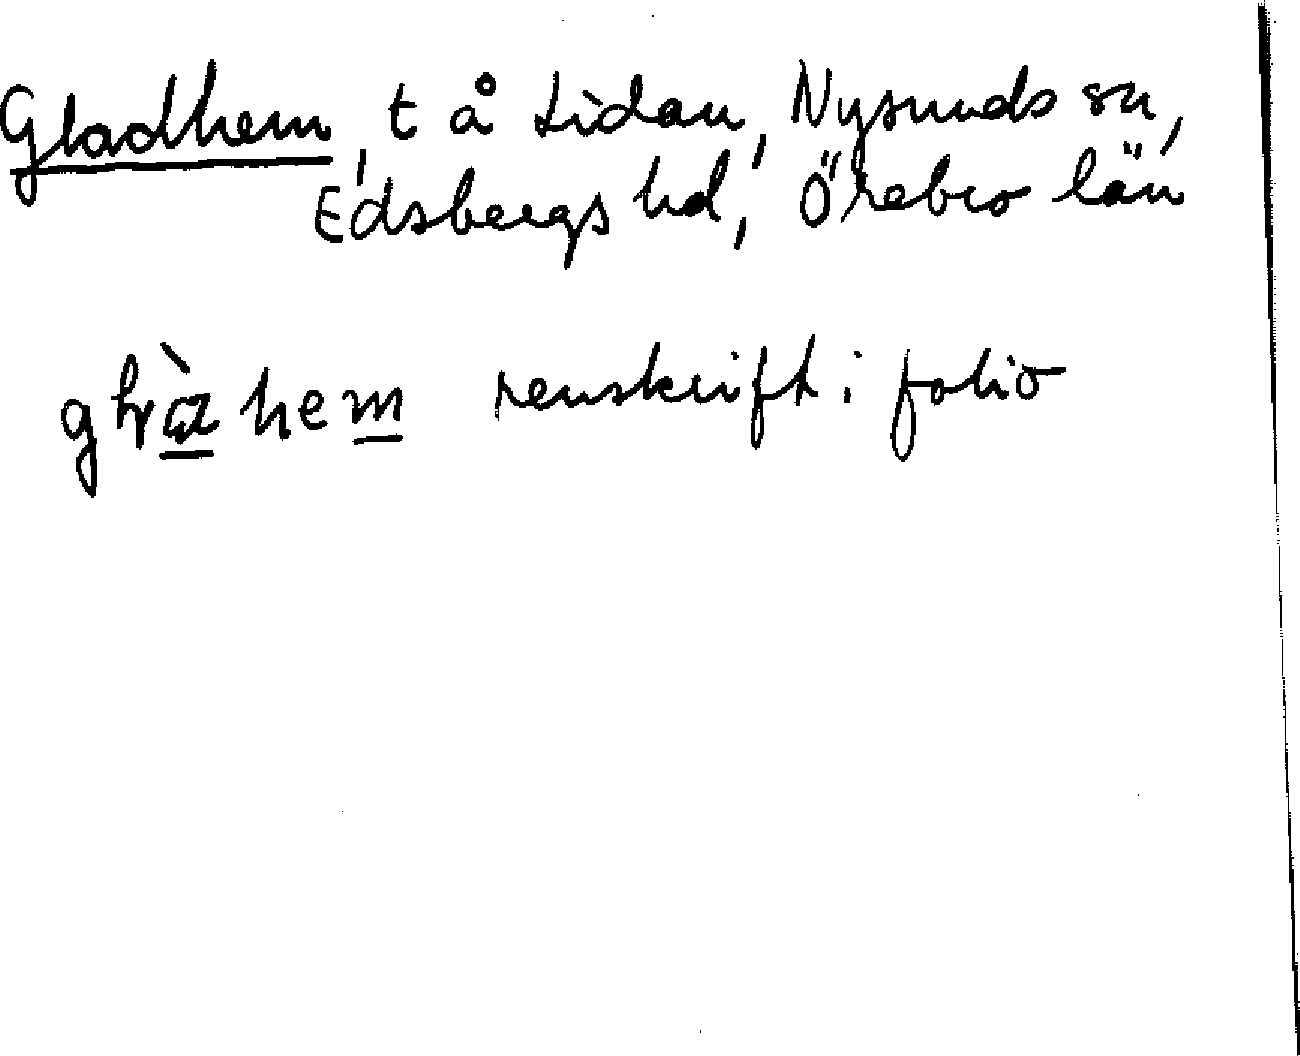 Gladhem, t å Lidan, Nysunds sn,
Edsbergs hd, Örebro län
renskrift i folio